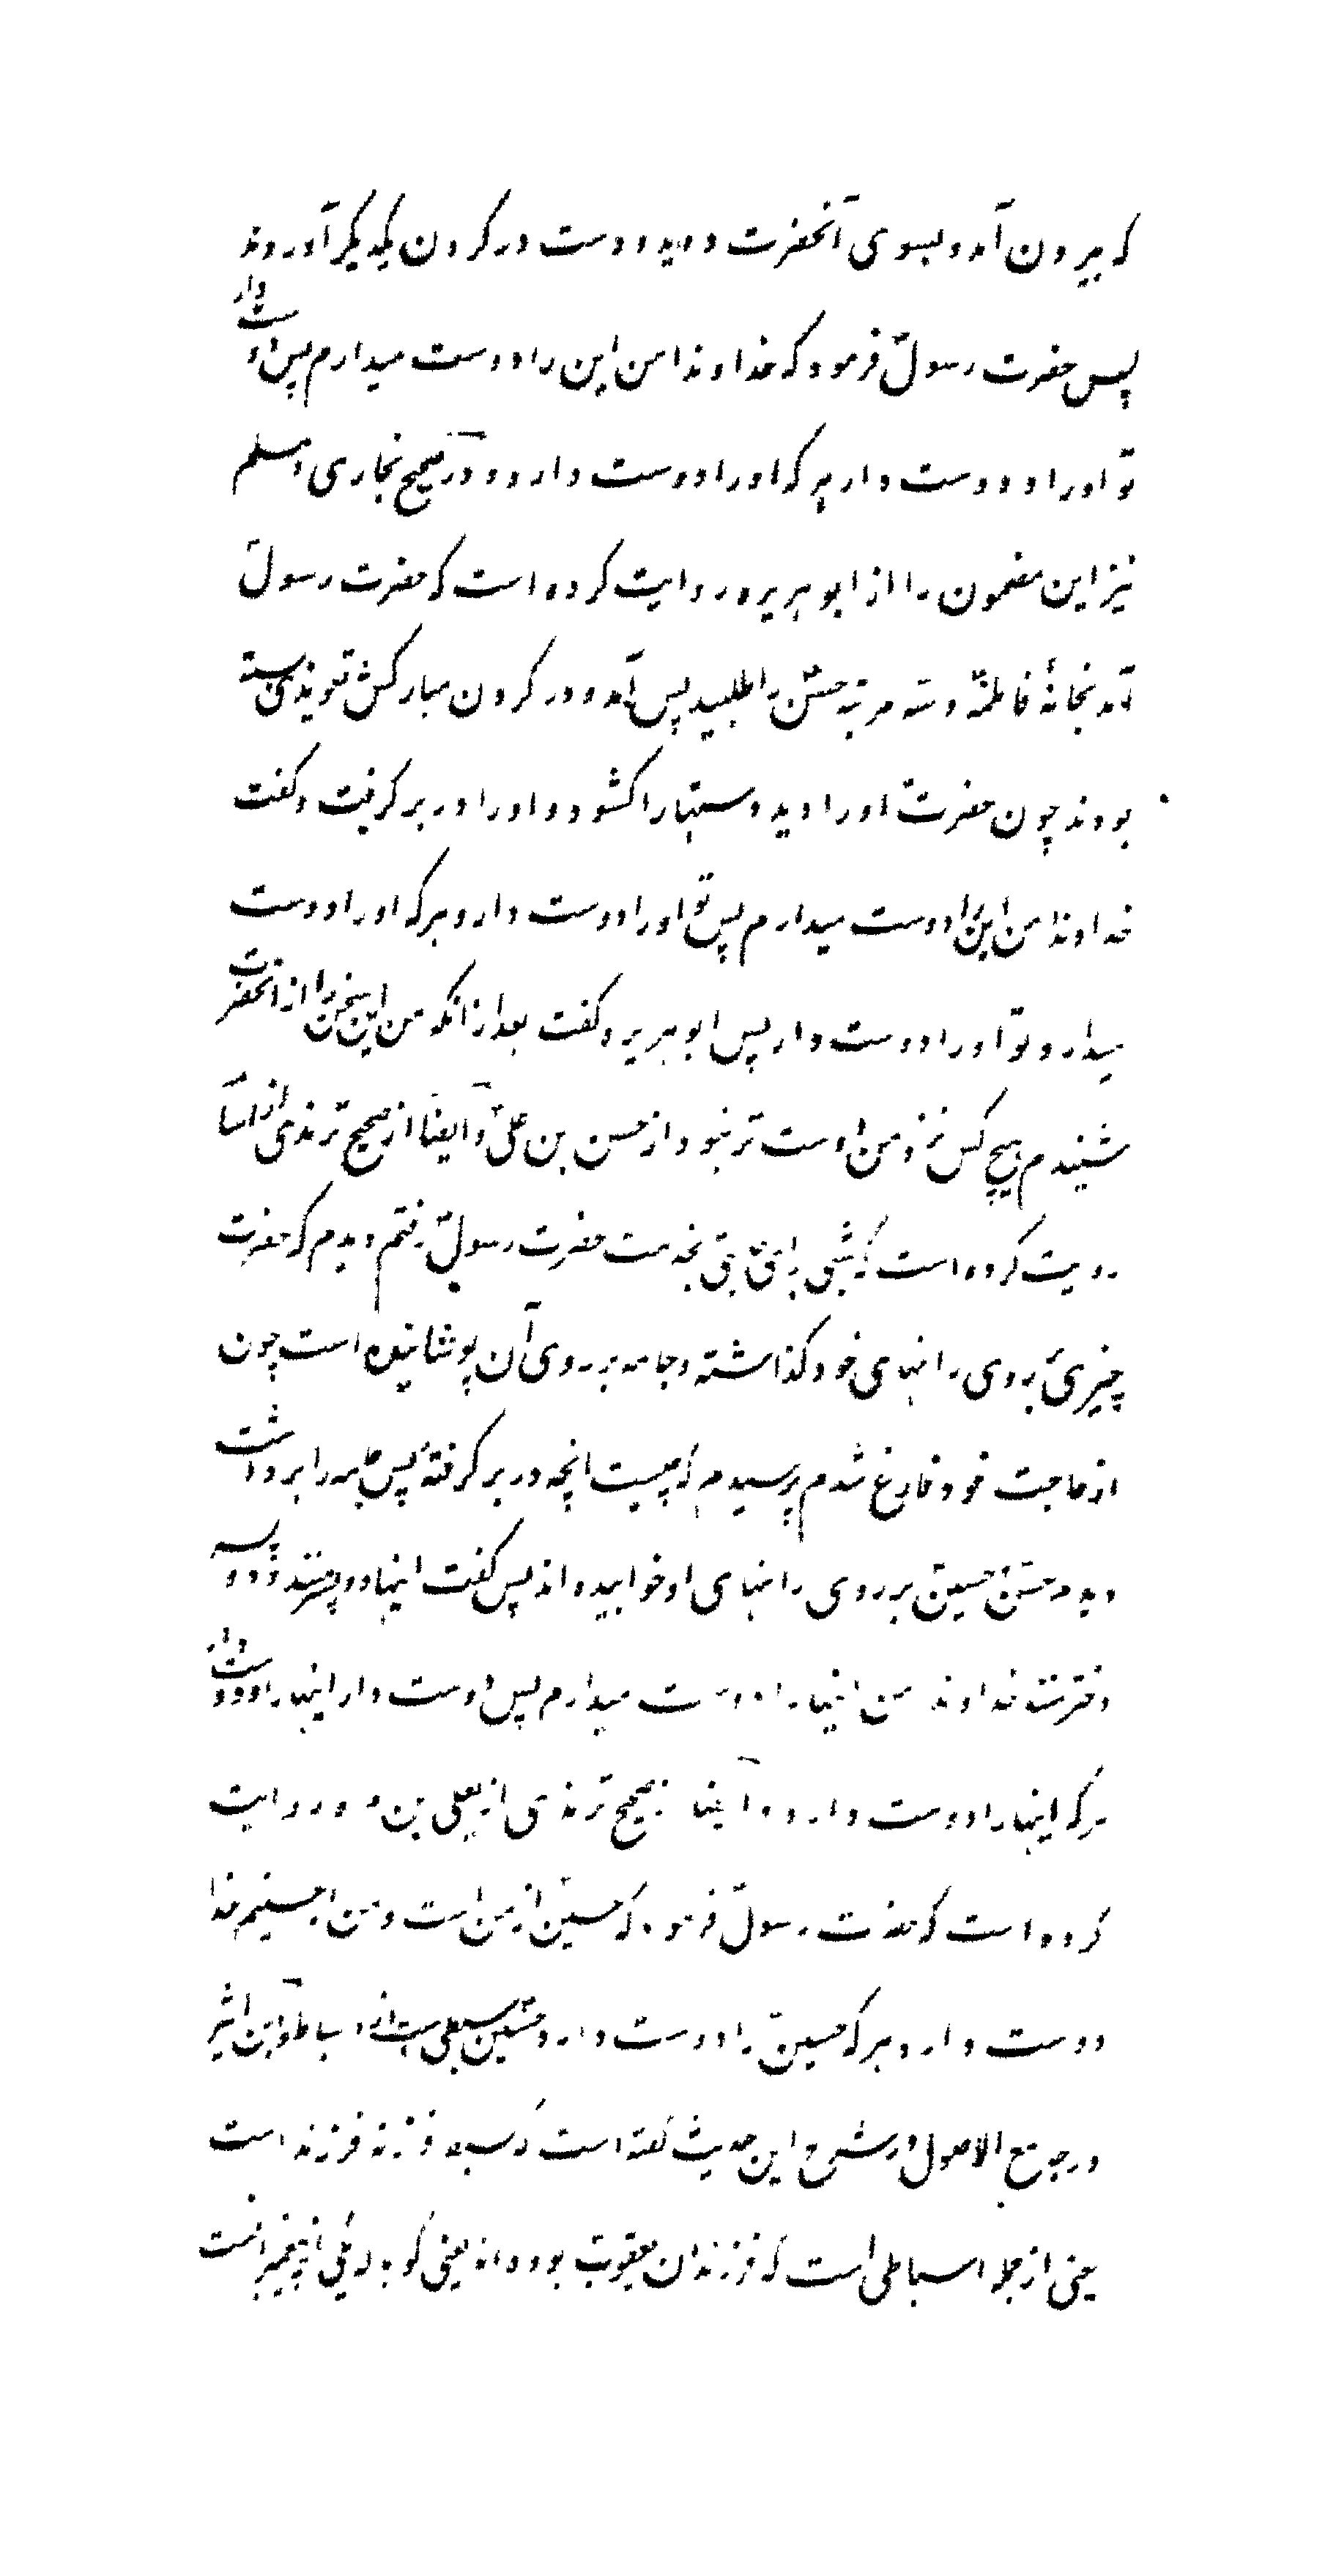 که بیرون آمد و بسوی آنحضرت دوید و دست در کردن یکدیکر آوردند
پس حضرت رسول فرمود که خداوندا من این را دوست میدارم پس دوست دار
تو او را و دوست دار هر که او را دوست دارد و در صحیح بخاری و مسلم
نیز این مضمون را از ابو هریره روایت کرده است که حضرت رسول
آمد بخانهٔ فاطمه و سه مرتبه حسن را طلبید پس آمد و در کردن مبارکش تعویذی بسته
بودند چون حضرت او را دید دستها را کشود و او را در بر کرفت و کفت
خداوندا من این را دوست میدارم پس تو او را دوست دار و هر که او را دوست
میدارد تو او را دوست دار پس ابو هریره کفت بعد از آنکه من این سخن را از آنحضرت
شنیدم هیچ کس نزد من دوست تر نبود از حسن بن علی و ایضا از صحیح ترمذی از اسامه
رویت کرده است که شبی برای بخدمت حضرت رسول رفتم دیدم که حضرت
چیزی بروی رانهای خود کذاشته و جامه بر روی آن پوشانیده است چون
از حاجت خود فارغ شدم پرسیدم که چیست انچه در بر کرفتهٔ پس جامه را برداشت
دیدم حسن و حسین بر روی رانهای او خوابیده اند پس کفت اینها دو پسر منند و دو پسر
دختر منند خداوندا من اینها را دوست میدارم پس دوست دار اینها را و دوست دار
هر که اینها را دوست دارد و ایضا صحیح ترمذی از یعلی بن مره روایت
کرده است که حضرت رسول فرمود که حسین از من است و من از حسینم خدا
دوست دارد هر که حسین را دوست دارد و حسین سبطی است از اسباط و ابن اثیر
در جامع الاصول در شرح این حدیث کفته است که سبط فرزند فرزند است
یعنی از جمله اسباطی است که فرزندان یعقوب بوده اند یعنی کویا یکی از پیغمبرانست